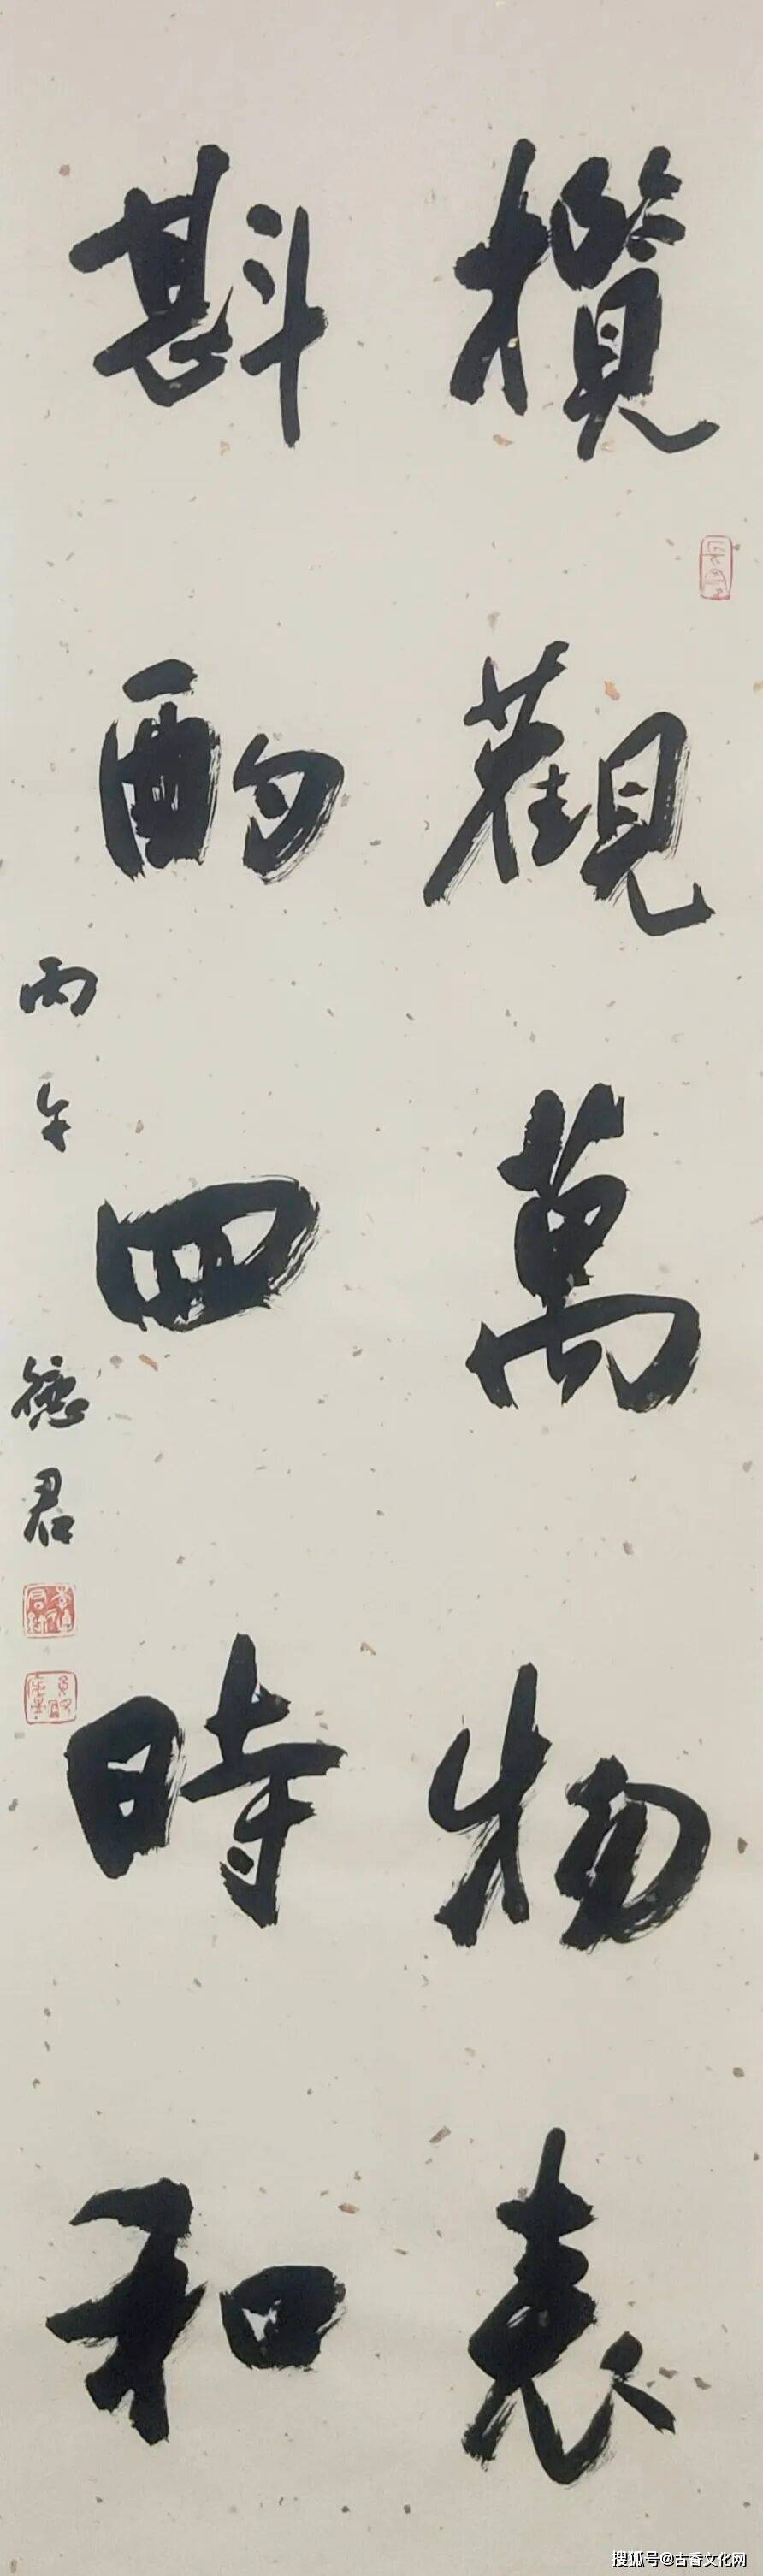 攬觀萬物表
斟酌四時和
丙午 德君
搜狐号@古香文化网